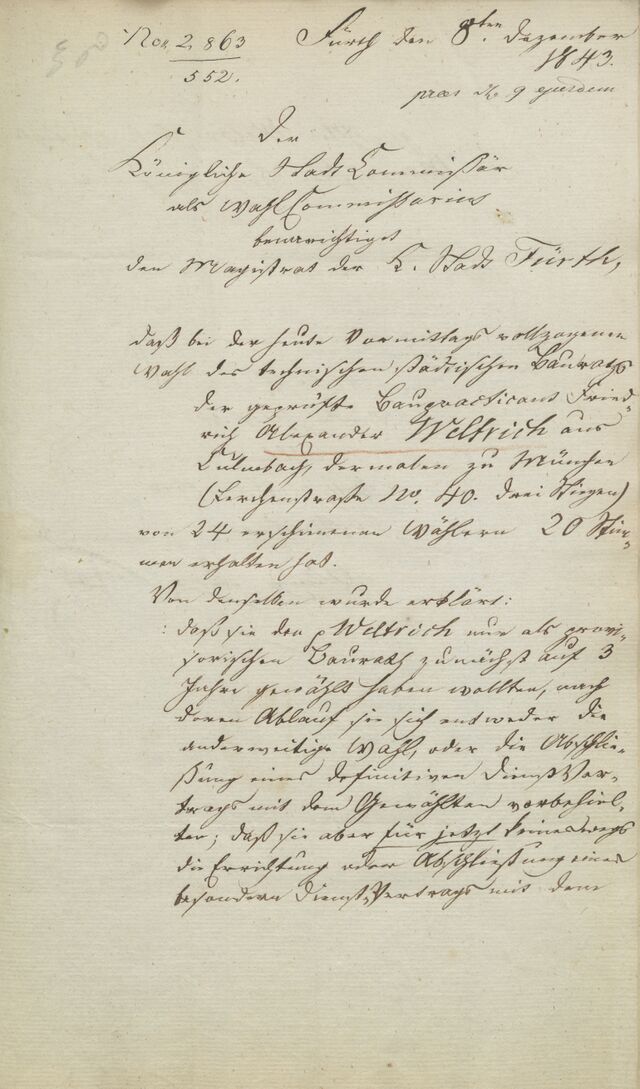 Nor. 2,863
552.
Fürth den 8ten Dezember
1843.
praes. d. 9 ejusdem
Der
Königliche Stadt Commissär
als Wahl Commissarius
benachrichtiget
den Magistrat der K. Stadt Fürth,
daß bei der heute Vormittags vollzogenen
Wahl des technischen städtischen Bauraths
der geprüfte Baupracticant Fried=
rich Alexander Weltrich aus
Culmbach, dermalen zu München
(Lerchenstraße No. 40. drei Stiegen)
von 24 erschienenen Wählern 20 Stim=
men erhalten hat.
Von denselben wurde erklärt:
: daß sie den p Weltrich nur als provi=
sorischen Baurath zunächst auf 3
Jahre gewählt haben wollten, nach
deren Ablauf sie sich entweder die
anderweitige Wahl, oder die Abschlie=
ßung eines definitiven Dienst Ver=
trags mit dem Gewählten vorbehiel=
ten; daß sie aber für jetzt keineswegs
die Errichtung oder Abschließung eines
besondern Dienst Vertrags mit dem